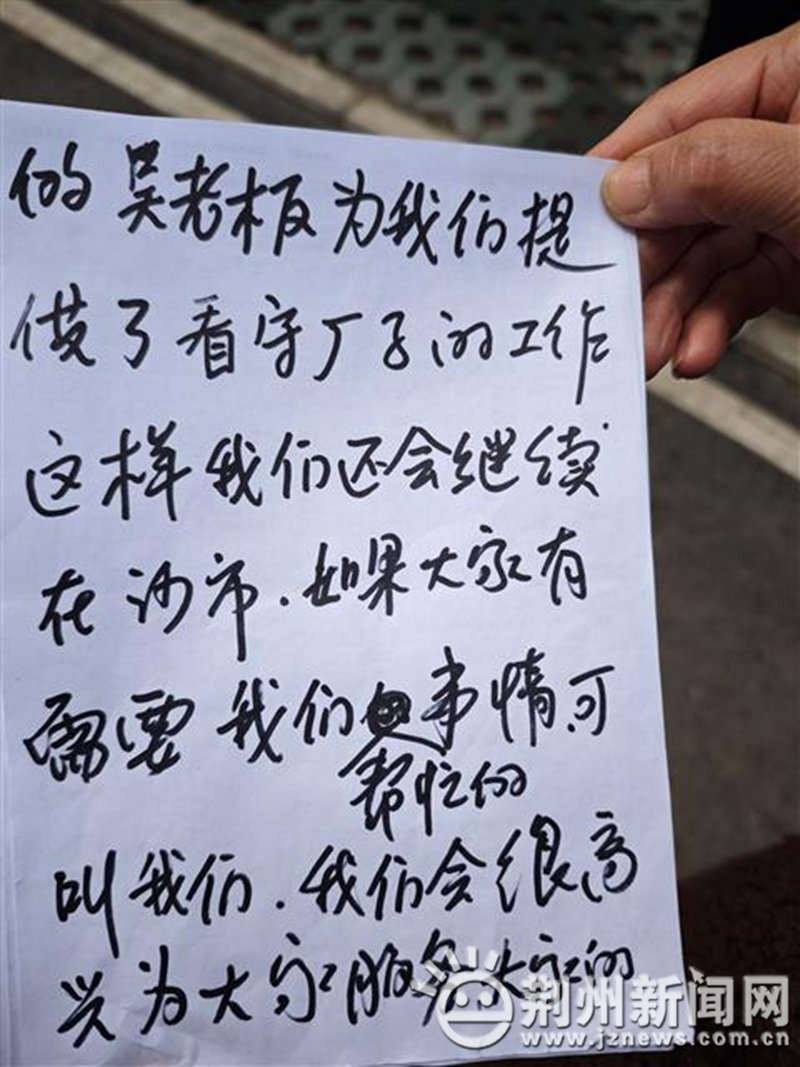 的吴老板为我们提
供了看守厂子的工作
这样我们还会继续
在沙市.如果大家有
需要我们事情可
帮忙的
叫我们.我们会很高
兴为大家服务大家的
荆州新闻网
www.jznews.com.cn